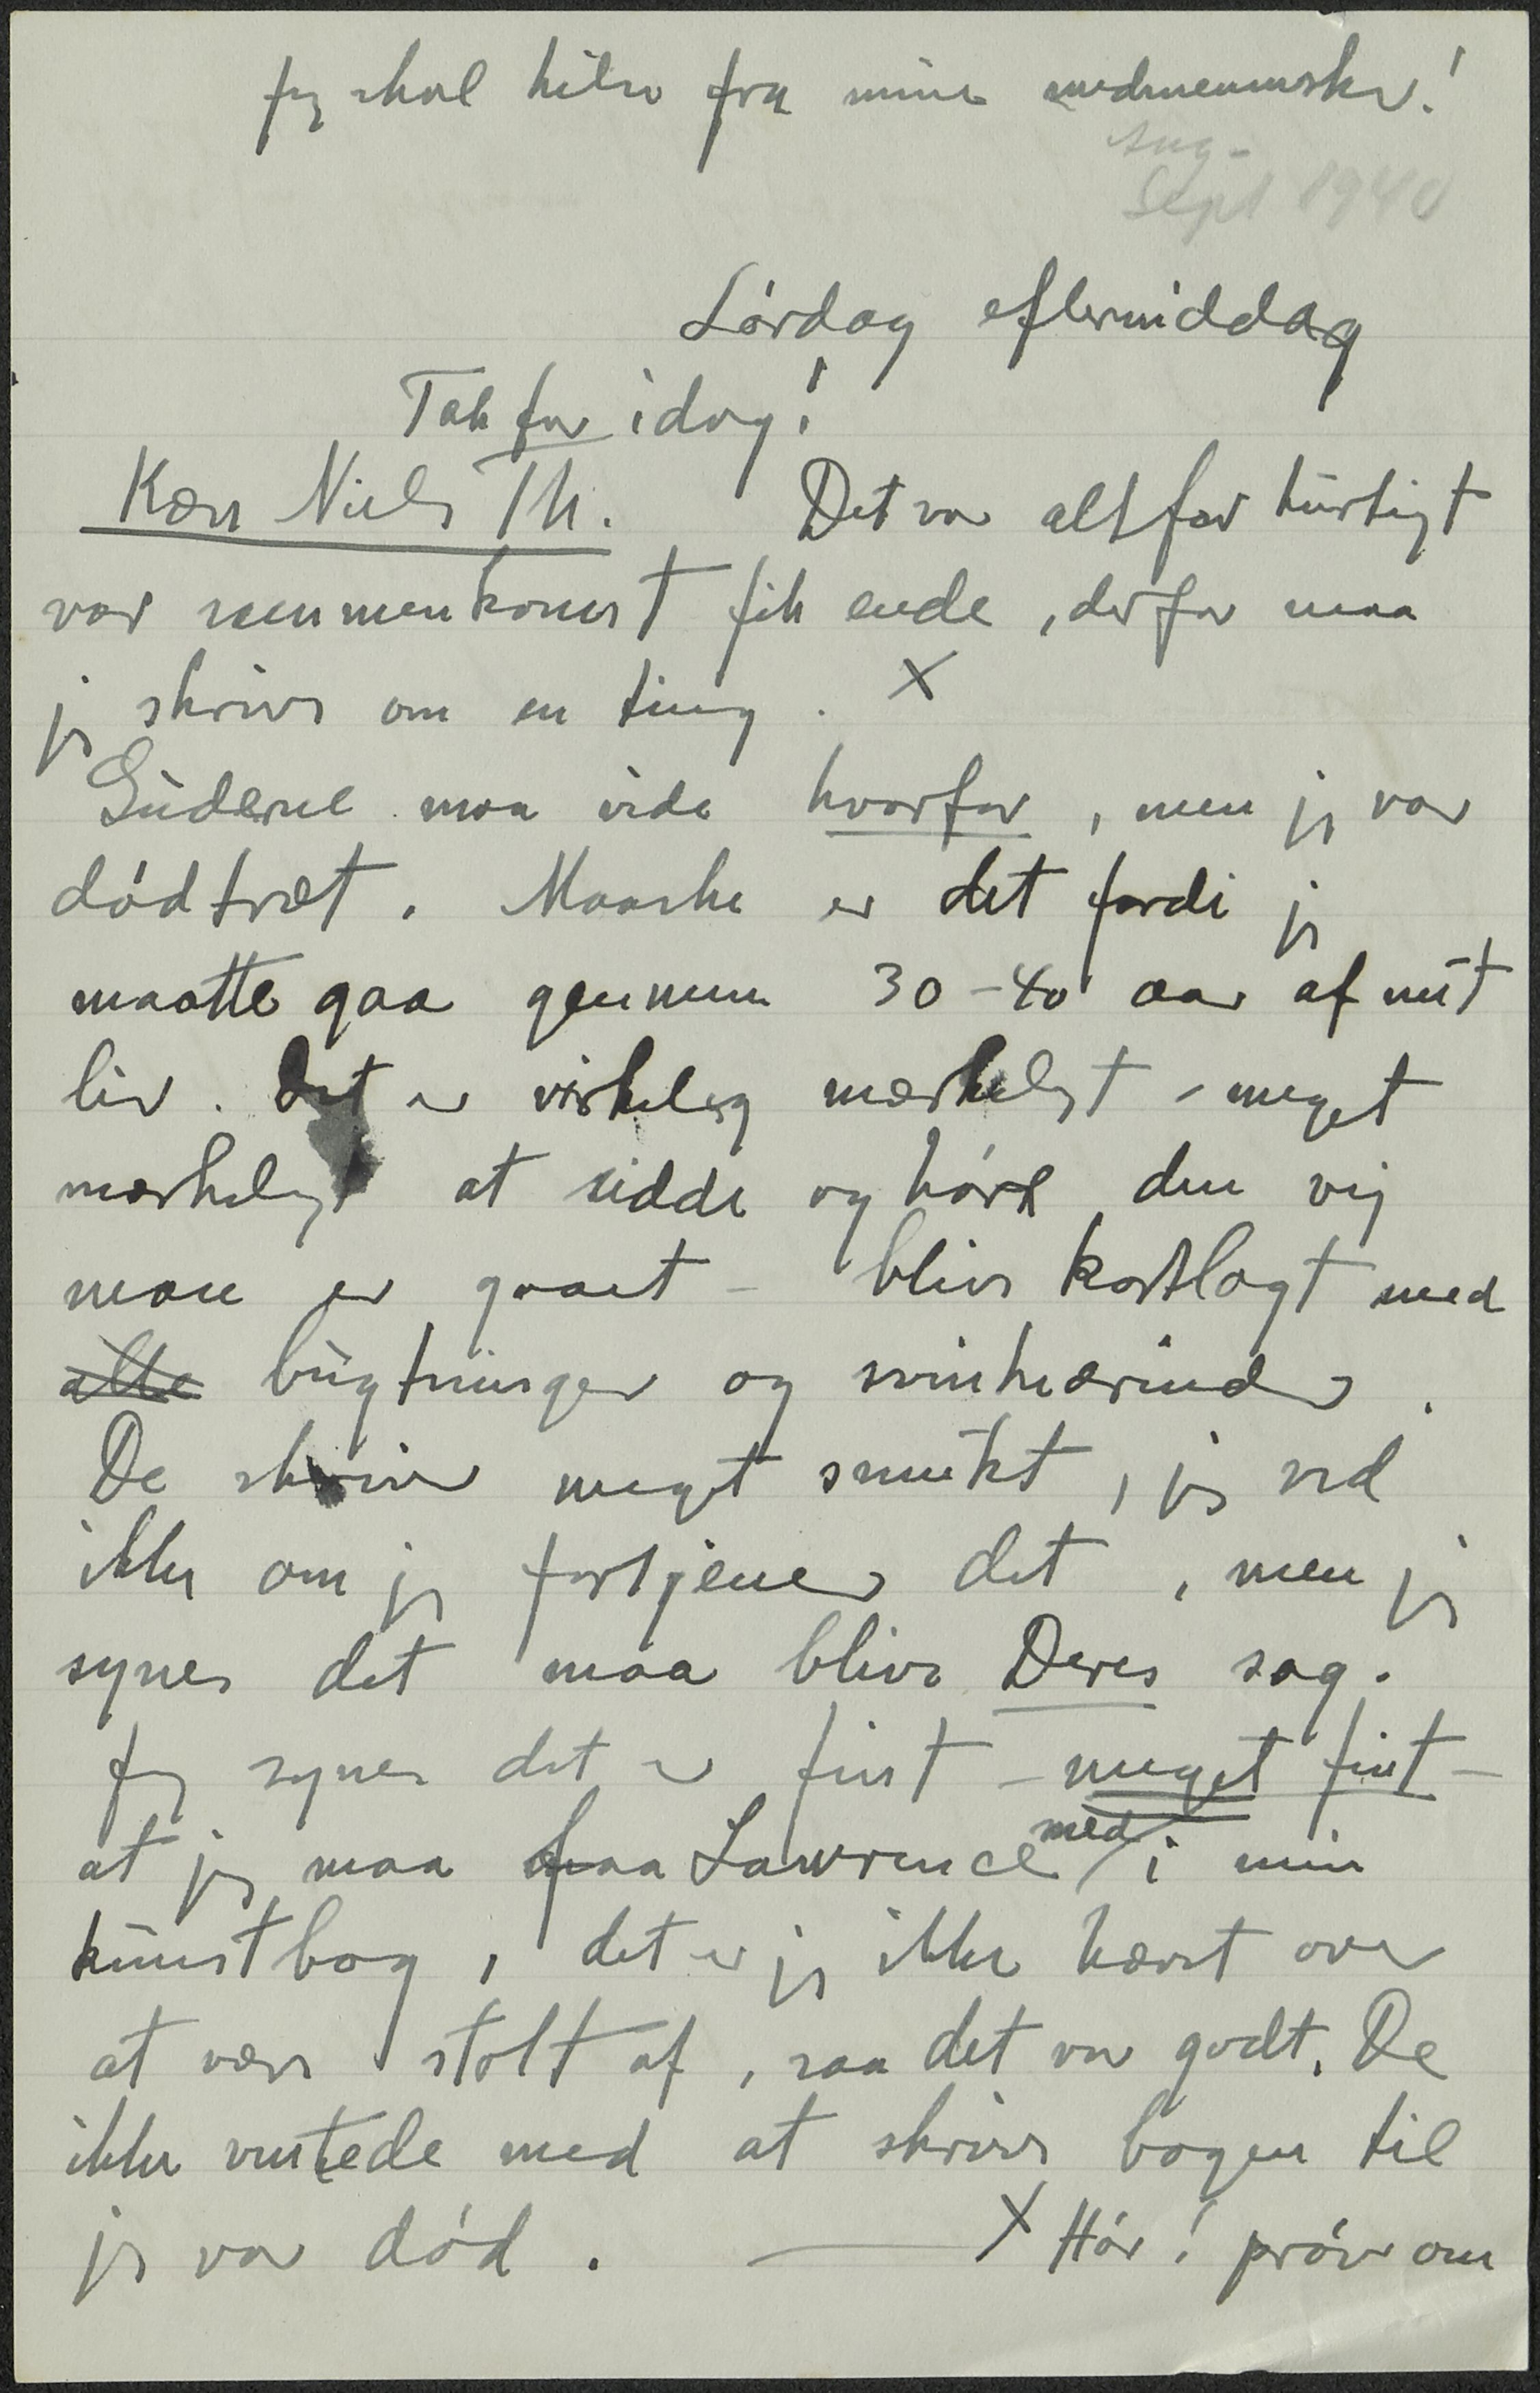 Jeg skal hilse fra mine medmennesker!
Aug-
Sept 1940
Lørdag eftermiddag
Tak for idag!
Kære Niels Th. Det var altfor hurtigt
vor sammenkomst fik ende, derfor maa
jeg skrive om en ting. X
Guderne maa vide hvorfor, men jeg var
dødtræt. Maaske er det fordi jeg
maatte gaa gennem 30-40 aar af mit
liv. Det er virkelig mærkeligt - meget
mærkeligt at sidde og høre den vej
man er gaaet - blive kortlagt med
alle bugtninger og svinkeærinder.
De skriver meget smukt, jeg ved
ikke om jeg fortjener det, men jeg
synes det maa blive Deres sag.
Jeg synes det er fint - meget fint -
at jeg maa faa Lawrence med i min
kunstbog, det er jeg ikke hævet over
at være stolt af, saa det var godt. De
ikke ventede med at skrive bogen til
jeg var død. — X Hør! prøv om